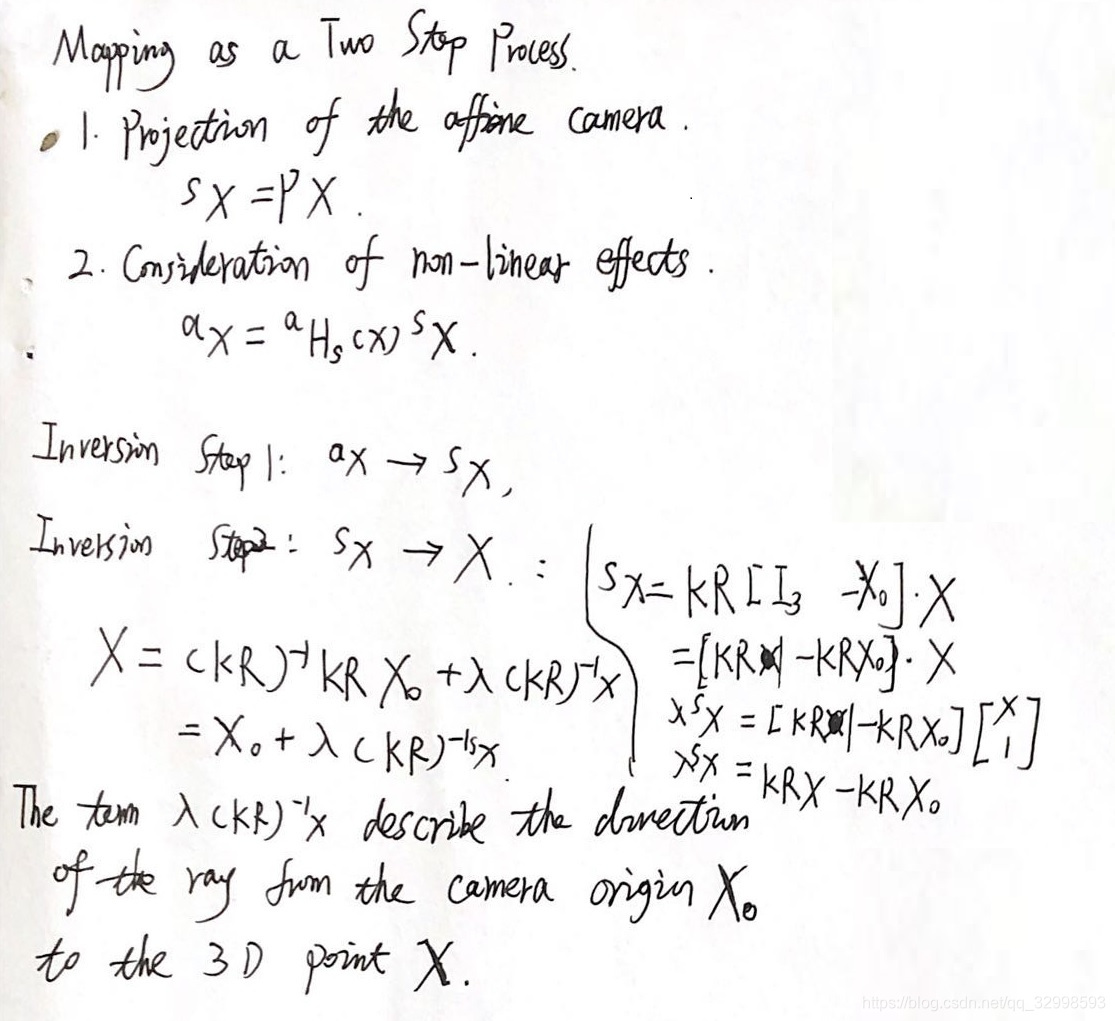 Mapping as a Two Step Process.
1. Projection of the affine camera.
ˢX = PX.
2. Consideration of non-linear effects.
ᵃX = ᵃHₛ(X) ˢX.
Inversion Step 1: ᵃX → ˢX,
Inversion Step2: ˢX → X. :
X = (KR)⁻¹ KR X₀ + λ(KR)⁻¹X
= X₀ + λ(KR)⁻¹ˢX.
ˢX = KR[I₃ -X₀]·X
=[KR| -KRX₀]·X
λˢX = [KR|-KRX₀][X 1]
λˢX = KRX -KRX₀
The term λ(KR)⁻¹X describe the direction
of the ray from the camera origin X₀
to the 3D point X.
https://blog.csdn.net/qq_32998593